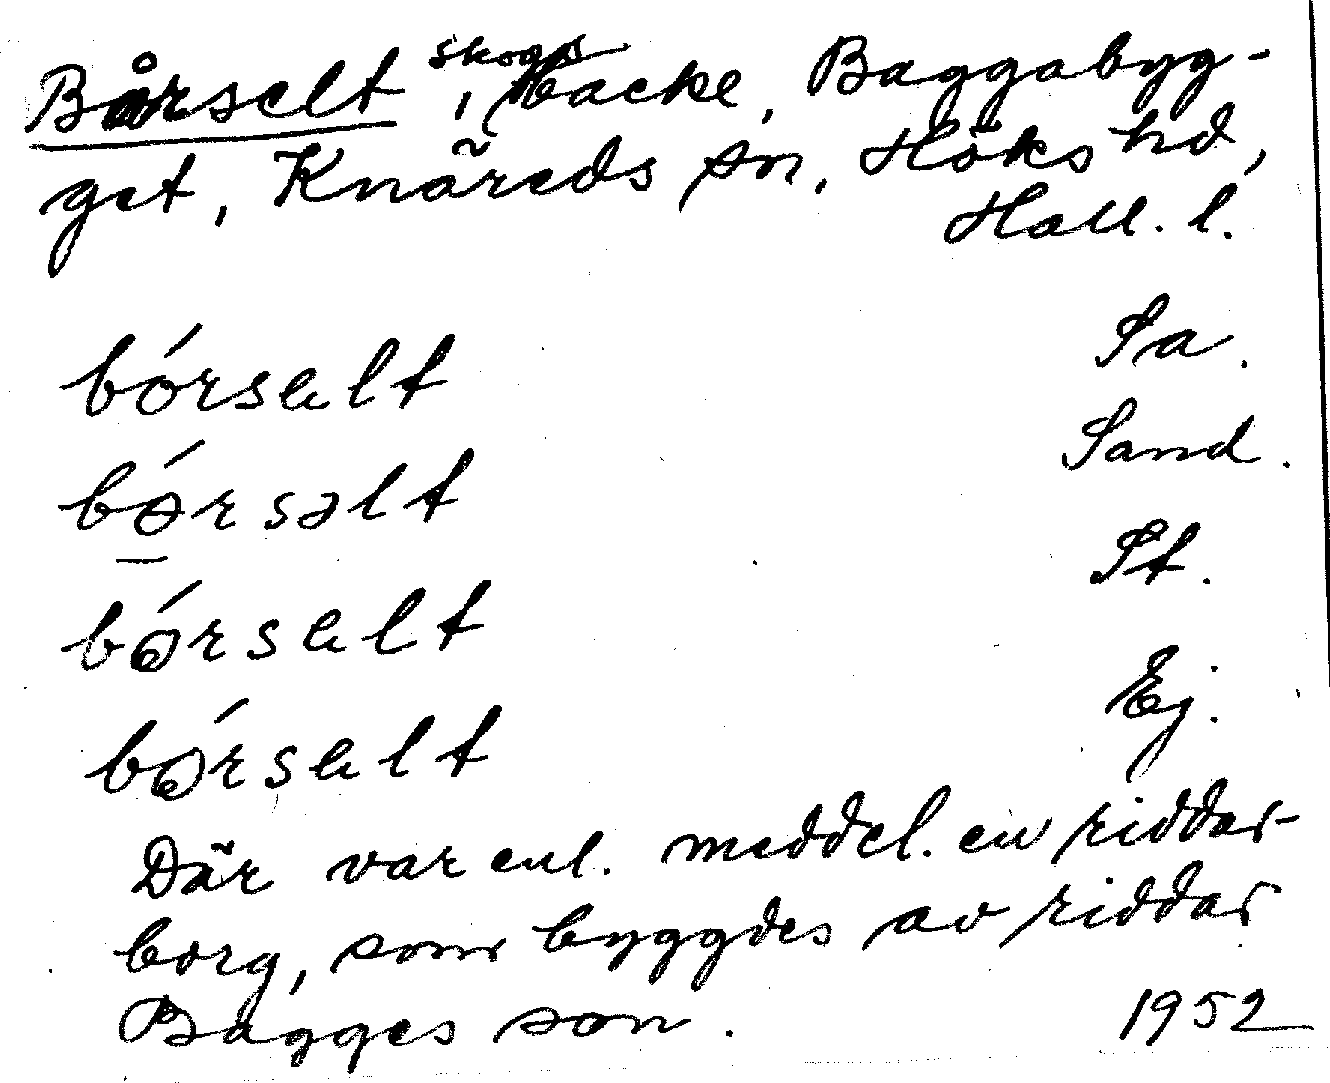 Bårselt, skogsbacke, Baggabyg-
get, Knäreds sn, Höks hd,
Hall. l.
bórsælt Sa.
bórsəlt Sand.
bórsælt St.
bórsælt Ej.
Där var enl. meddel. en riddar-
borg, som byggdes av riddar
Bagges son. 1952